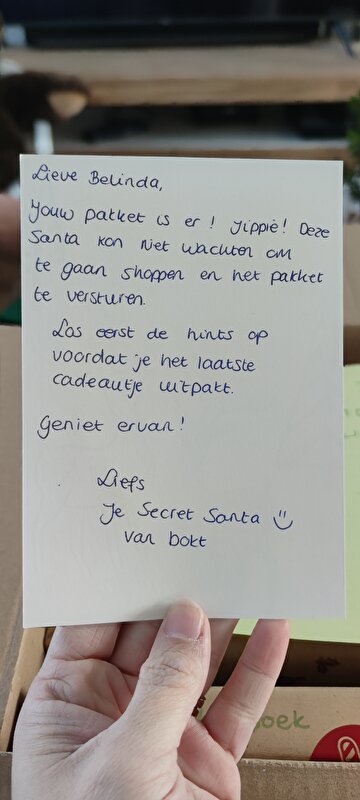 Lieve Belinda,
Jouw pakket is er! Jippie! Deze
Santa kon niet wachten om
te gaan shoppen en het pakket
te versturen.
Los eerst de hints op
voordat je het laatste
cadeautje uitpakt.
Geniet ervan!
Liefs
Je Secret Santa
van bokt
oek